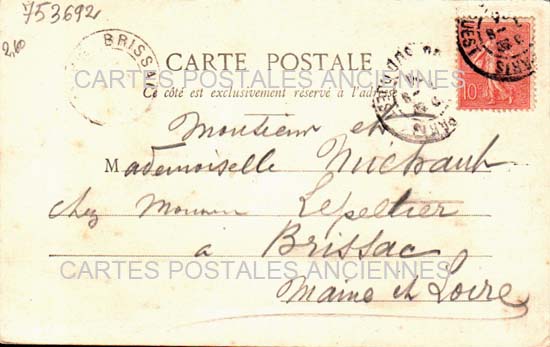 753692
2,10
BRISSAC
CARTE POSTALE
CARTES POSTALES ANCIENNES
Ce côté est exclusivement réservé à l'adresse
PARIS
10
Monsieur et
Mademoiselle Michault
chez Monsieur Lepeltier
à
Brissac
CARTES POSTALES ANCIENNES
Maine et Loire